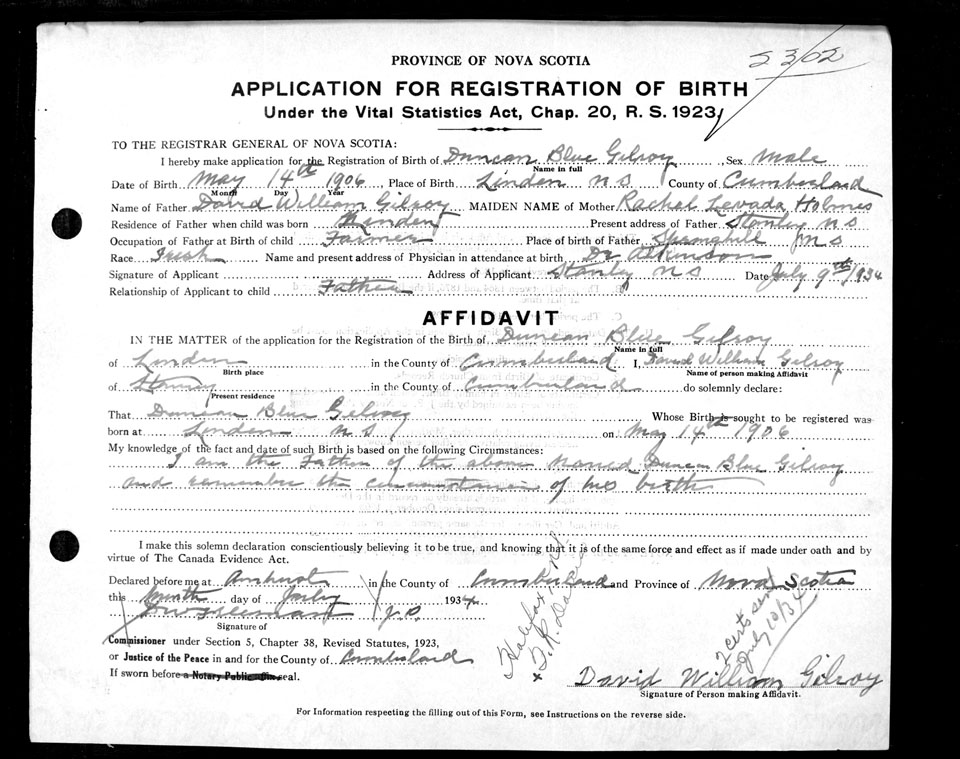 PROVINCE OF NOVA SCOTIA
APPLICATION FOR REGISTRATION OF BIRTH
Under the Vital Statistics Act, Chap. 20, R. S. 1923
TO THE REGISTRAR GENERAL OF NOVA SCOTIA:
I hereby make application for the Registration of Birth of Duncan Blue Gilroy Sex Male
Name in full
Date of Birth May 14th 1906 Place of Birth Linden N S County of Cumberland
Month Day Year
Name of Father David William Gilroy MAIDEN NAME of Mother Rachel Levada Holmes
Residence of Father when child was born Linden Present address of Father Stanley N S
Occupation of Father at Birth of child Farmer Place of birth of Father Springhill N S
Race Irish Name and present address of Physician in attendance at birth Dr Atkinson
Signature of Applicant Address of Applicant Stanley N S Date July 9th 1934
Relationship of Applicant to child Father
AFFIDAVIT
IN THE MATTER of the application for the Registration of the Birth of Duncan Blue Gilroy
Name in full
of Linden in the County of Cumberland I, David William Gilroy
Birth place Name of person making Affidavit
of in the County of Cumberland do solemnly declare:
Present residence
That Duncan Blue Gilroy Whose Birth is sought to be registered was
born at Linden N S on May 14th 1906
My knowledge of the fact and date of such Birth is based on the following Circumstances:
I am the Father of the above named Duncan Blue Gilroy
and remember the circumstances of his birth
I make this solemn declaration conscientiously believing it to be true, and knowing that it is of the same force and effect as if made under oath and by
virtue of The Canada Evidence Act.
Declared before me at Amherst in the County of Cumberland and Province of Nova Scotia
this Ninth day of July 1934
J.P.
Signature of
Commissioner under Section 5, Chapter 38, Revised Statutes, 1923,
or Justice of the Peace in and for the County of Cumberland
If sworn before a Notary Public affix seal.
Halifax N.S.
2 certs sent
July 10/34
David William Gilroy
Signature of Person making Affidavit.
For Information respecting the filling out of this Form, see Instructions on the reverse side.